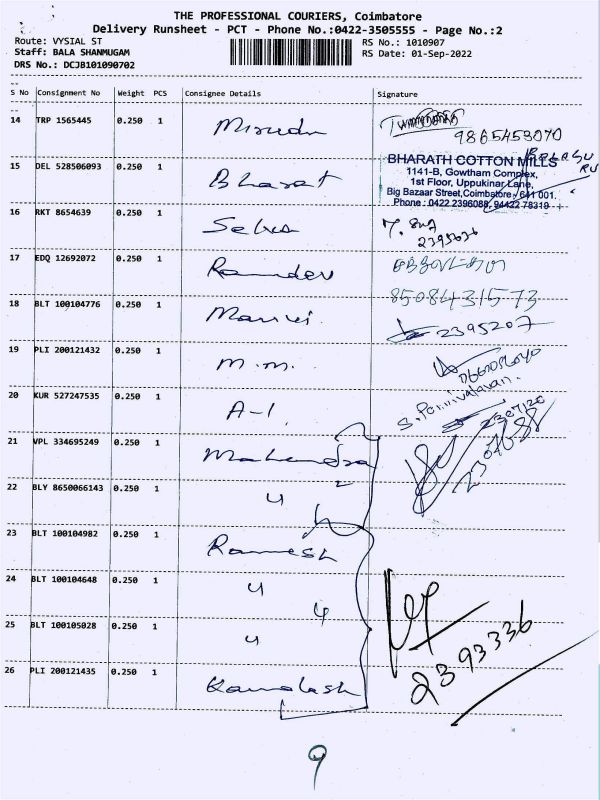 THE PROFESSIONAL COURIERS, Coimbatore
Delivery Runsheet - PCT - Phone No.:0422-3505555 - Page No.:2
Route: VYSIAL ST
RS No.: 1010907
Staff: BALA SHANMUGAM
RS Date: 01-Sep-2022
DRS No.: DCJB101090702
S No Consignment No Weight PCS Consignee Details Signature
14 TRP 1565445 0.250 1 Mirudu
9865453070
15 DEL 528506093 0.250 1 Bharat
BHARATH COTTON MILLS
1141-B, Gowtham Complex,
1st Floor, Uppukinar Lane,
Big Bazaar Street, Coimbatore - 641 001.
Phone : 0422 2396088, 94422 78319
16 RKT 8654639 0.250 1 Selva
2395636
17 EDQ 12692072 0.250 1 Ramdev
8508431573
18 BLT 100104776 0.250 1
2395207
19 PLI 200121432 0.250 1 M.M.
20 KUR 527247535 0.250 1 A-1
21 VPL 334695249 0.250 1 Mahendra
22 BLY 8650066143 0.250 1 "
23 BLT 100104982 0.250 1 Ramesh
24 BLT 100104648 0.250 1 "
4
25 BLT 100105028 0.250 1 "
2393336
26 PLI 200121435 0.250 1 Kamalesh
9